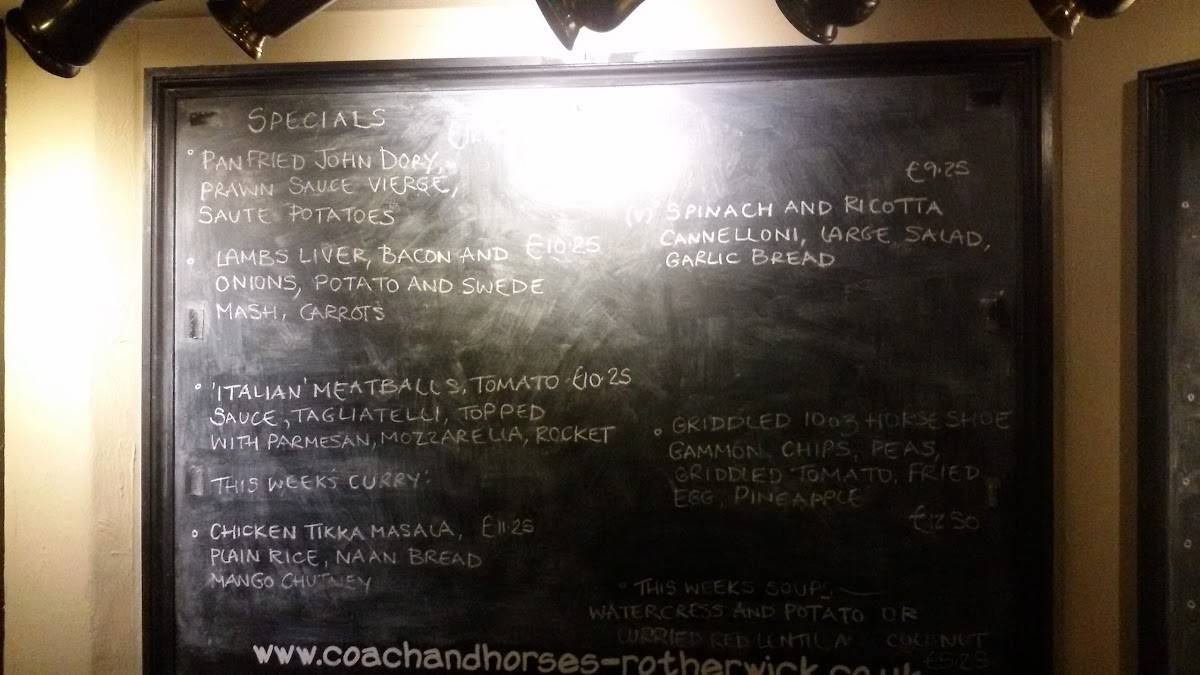 SPECIALS
° PANFRIED JOHN DORY,
PRAWN SAUCE VIERGE,
SAUTE POTATOES
° LAMBS LIVER, BACON AND £10.25
ONIONS, POTATO AND SWEDE
MASH, CARROTS
° 'ITALIAN' MEATBALLS, TOMATO £10.25
SAUCE, TAGLIATELLI, TOPPED
WITH PARMESAN, MOZZARELLA, ROCKET
THIS WEEKS CURRY:
° CHICKEN TIKKA MASALA, £11.25
PLAIN RICE, NAAN BREAD
MANGO CHUTNEY
£9.25
(V) SPINACH AND RICOTTA
CANNELLONI, LARGE SALAD,
GARLIC BREAD
° GRIDDLED 10oz HORSESHOE
GAMMON, CHIPS, PEAS,
GRIDDLED TOMATO, FRIED
EGG, PINEAPPLE
£12.50
° THIS WEEKS SOUPS
WATERCRESS AND POTATO OR
CURRIED RED LENTIL COCONUT
£5.25
www.coachandhorses-rotherwick.co.uk